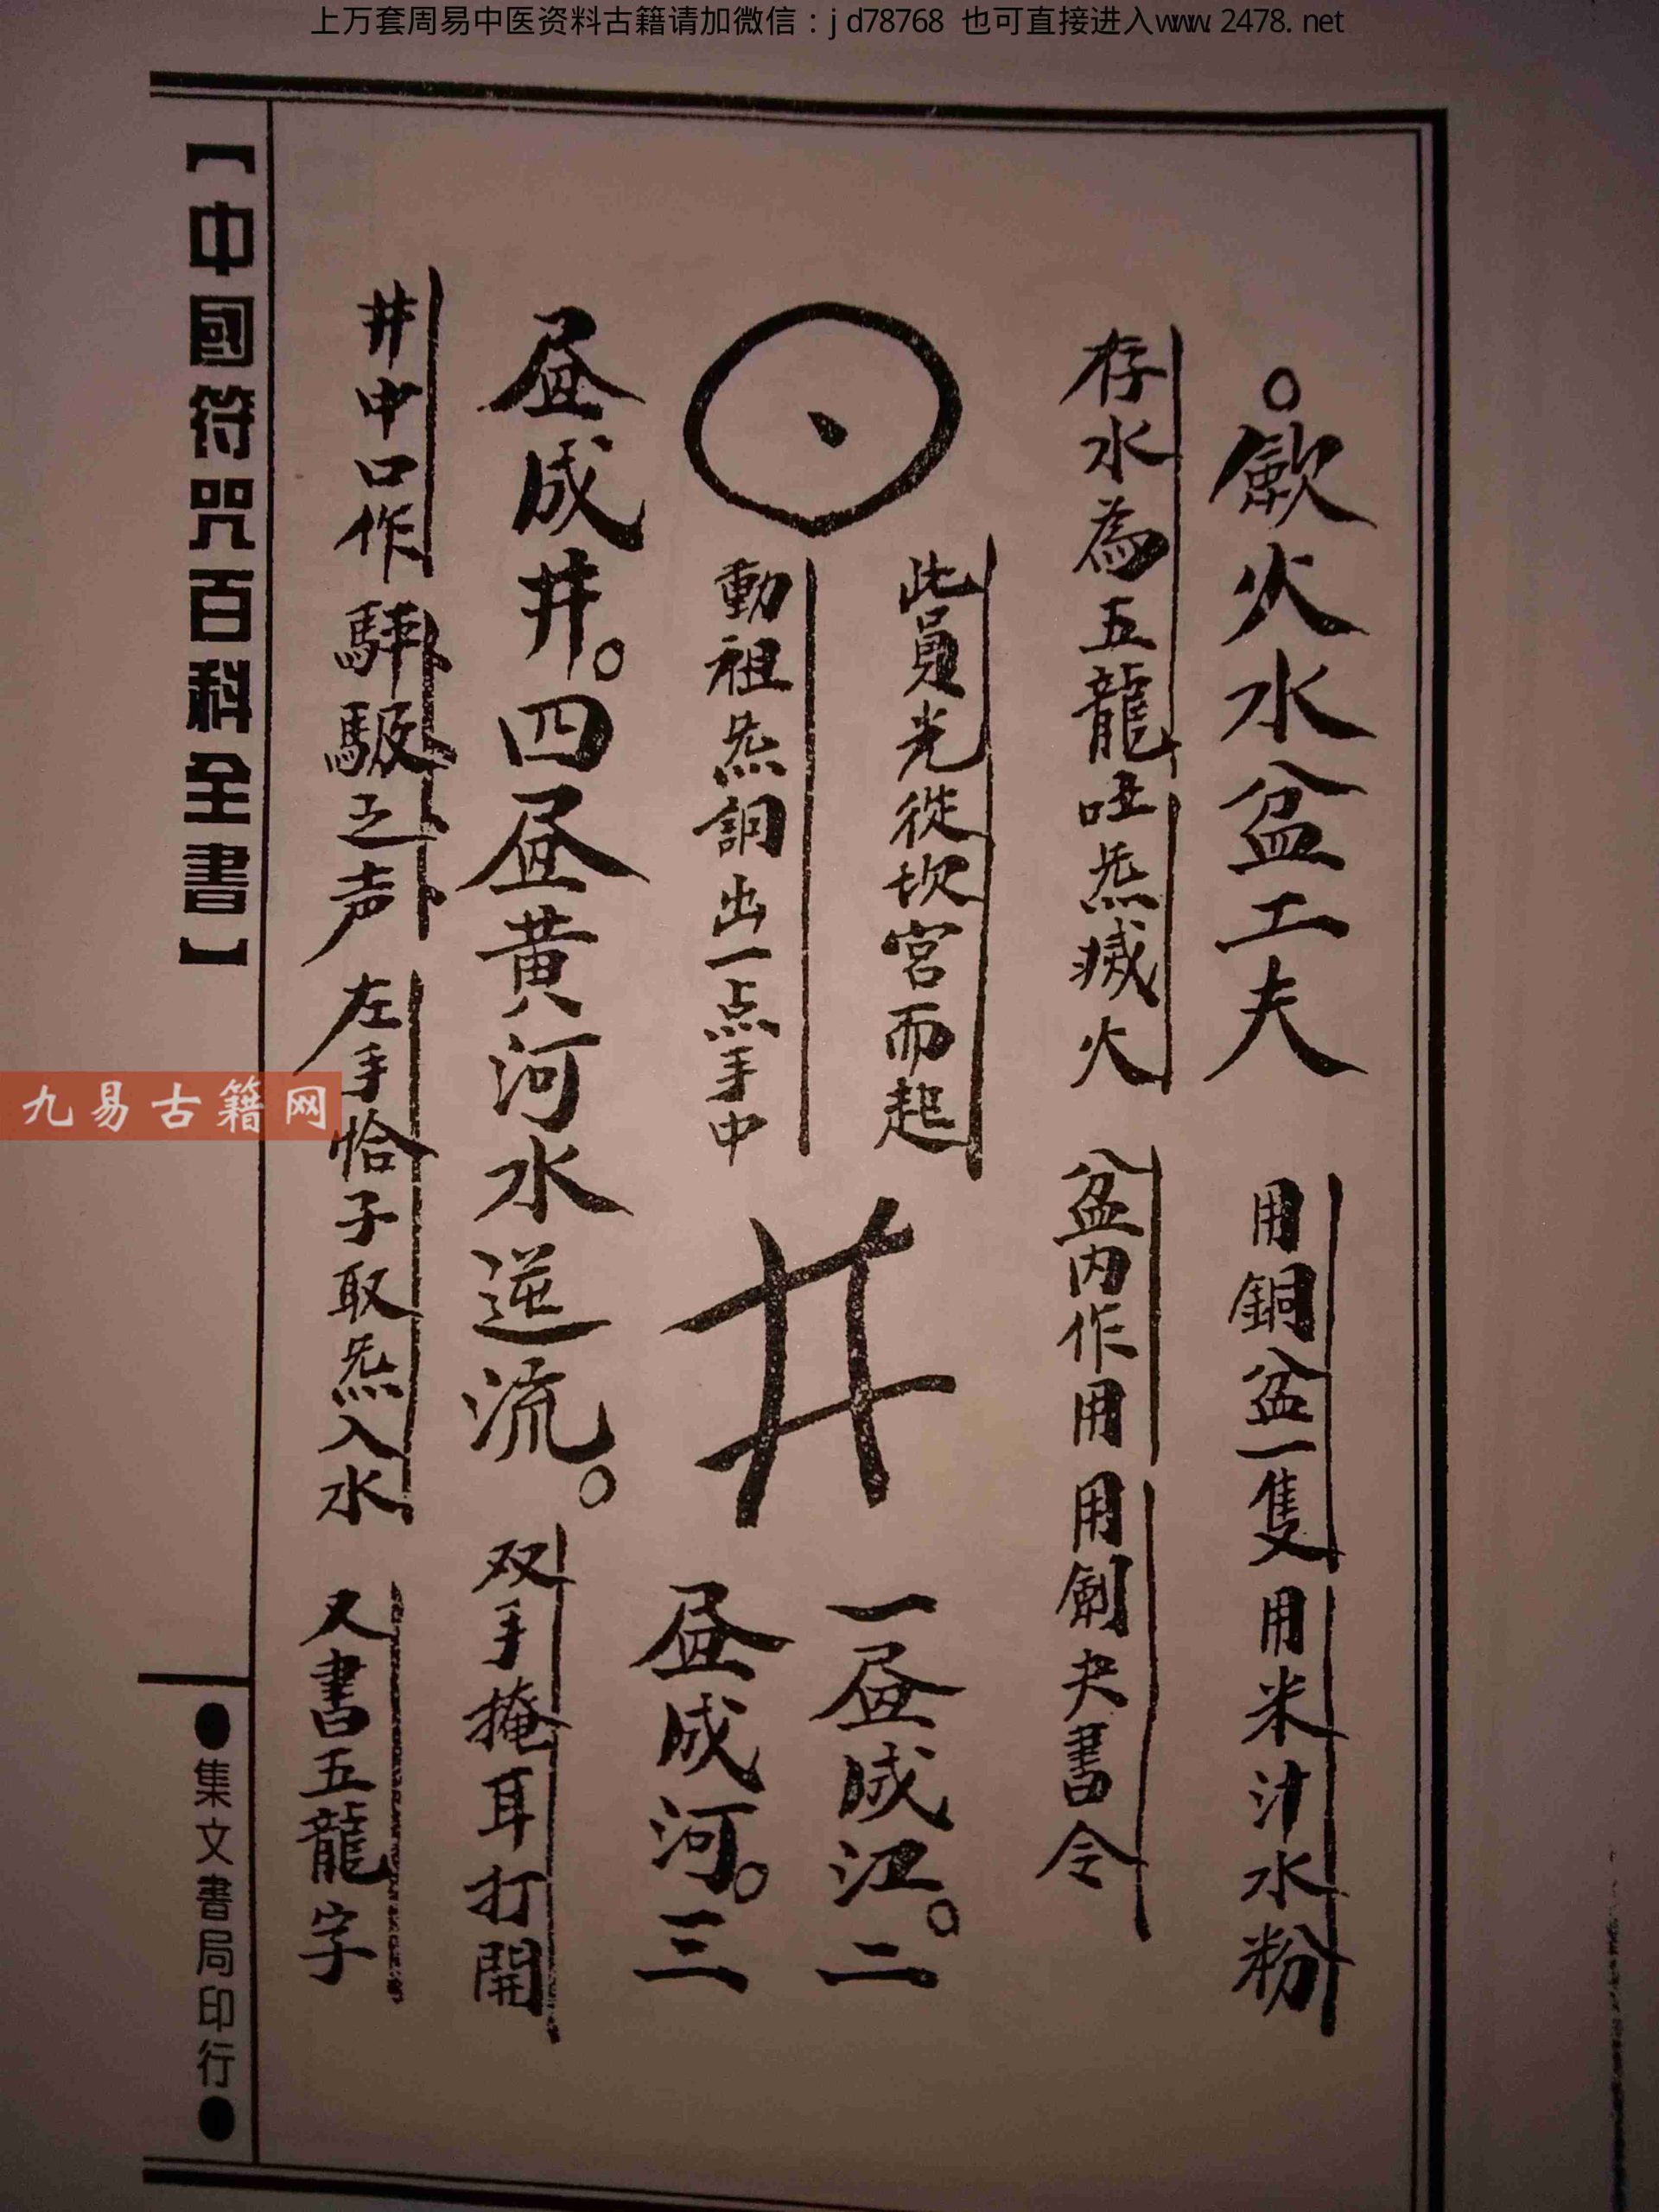 上万套周易中医资料古籍请加微信：jd78768 也可直接进入www.2478.net
火水盆工夫 用銅盆一隻 用米汁水粉
存水為五龍吐炁滅火 盆內作用 用劍 書令
此員光從坎宮而起
動祖炁 出一点手中
井
一昼成江。二
昼成河。三
昼成井。四昼黃河水逆流。 双手掩耳打開
井中口作 之声 左手恰子取炁入水 又書五龍字
【中國符咒百科全書】
●集文書局印行●
九易古籍网